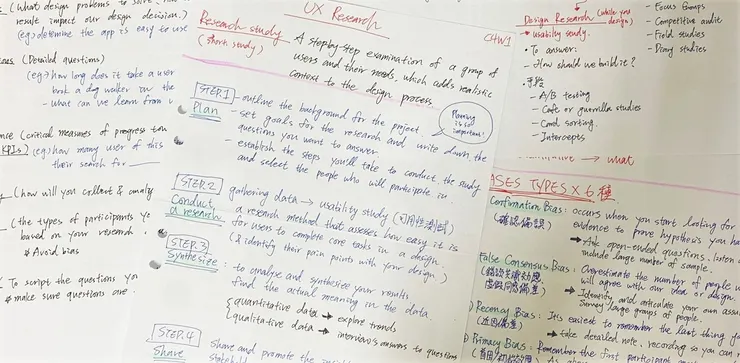 (What design problems to solve, how
result impact our design decision.)
(eg.) determine the app is easy to use
(Detailed questions)
(eg.) how long does it take a user
book a dog walker in the
- what can we learn from
(critical measures of progress
KPIs) (eg.) how many user of this
their search for
(how will you collect & analy
(the types of participants
based on your research
* Avoid bias
(To script the questions you
* make sure questions are
UX Research
C4W1
Research study
(short study)
A step by step examination of a group of
users and their needs, which adds realistic
context to the design process.
STEP.1
Plan
- outline the background for the project.
- set goals for the research and write down the
questions you want to answer.
- establish the steps you'll take to conduct the study
and select the people who will participate in.
Planning
is so
important!
STEP.2
Conduct
a research
gathering data → usability study (可用性測試)
a research method that assesses how easy it is
for users to complete core tasks in a design.
(& identify their pain points with your design.)
STEP.3
Synthesize
: to analyse and synthesize your results
find the actual meaning in the data.
quantitative data → explore trends
qualitative data → interviews answers to questions
STEP.4
Share
Share and promote the
Design Research (while you
design)
→ usability study.
• To answer:
- How should we build it?
• 手段
- A/B testing
- Cafe or guerrilla studies
- Card sorting.
- Intercepts
- Focus Groups
- Competitive audit
- Field studies
- Diary studies
→ what
ASES TYPES X 6種
Confirmation Bias: occurs when you start looking for
(確認偏誤)
evidence to prove hypothesis you ha
→ Ask open-ended questions, listen
include large number of sample.
False Consensus Bias: Overestimate the number of people w
(錯誤共識効應
虛假同感偏差)
will agree with our idea or design.
→ Identify and articulate your own assu
Survey large groups of people.
Recency Bias: It's easiest to remember the last thing y
(近因偏差)
→ take detailed note, recording so you can
Primacy Bias: Remember the first participant